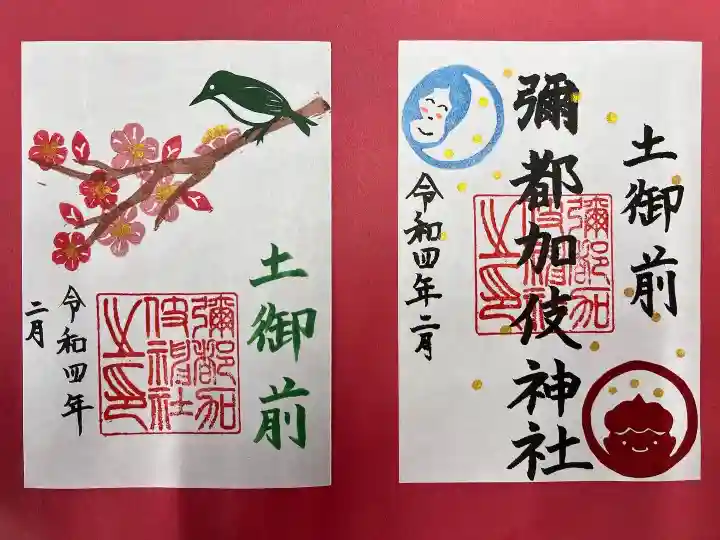 土御前
彌都加
伎神社
之印
令和四年
二月
土御前
彌都加伎神社
彌都加
伎神社
之印
令和四年二月